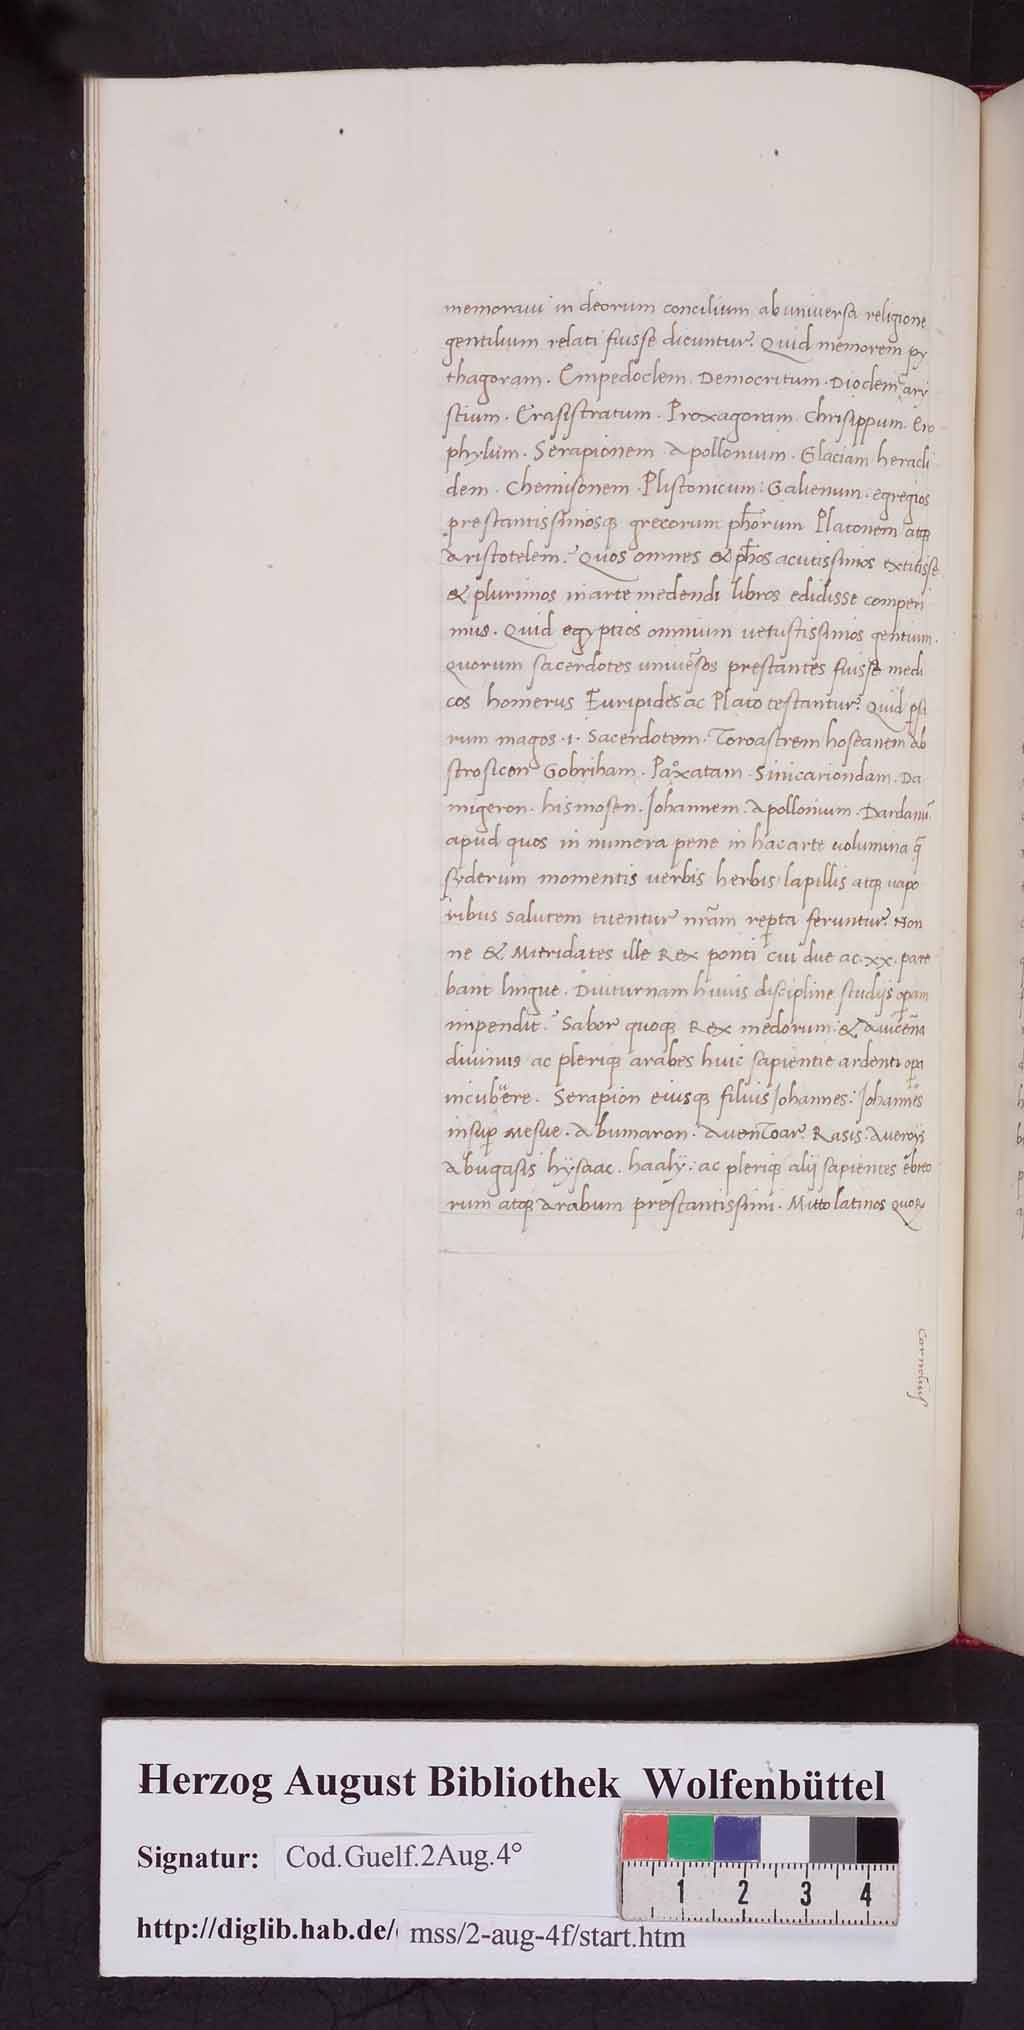 memoraui in deorum concilium ab uniuersa religione
gentilium relati fuisse dicuntur? Quid memorem py
thagoram . Empedoclem . Democritum . Dioclem ary
stium . Erasistratum . Proxagoram . Chrisippum . Ero
phylum . Serapionem Apollonium . Glaciam heracli
dem . Chemisonem . Plistonicum : Galienum . egregios
prestantissimosq; grecorum ph̄orum Platonem atq;
Aristotelem? Quos omnes & ph̄os acutissimos extitisse
& plurimos in arte medendi libros edidisse comperi
mus . Quid egyptios omnium uetustissimos gentium .
Quorum sacerdotes uniuēsos prestantes fuisse medi
cos homerus Euripides ac Plato testantur? Quid ꝑsa
rum magos .i. Sacerdotem . Toroastrem hostanem Ab
strosicon Gobriham . Paoxatam . Sinicariondam . Da
migeron . hismosen . Johannem . Apollonium . Dardanū
apud quos in numera pene in hac arte uolumina q̄
syderum momentis uerbis herbis lapillis atq; uapo
ribus salutem tuentur nr̄am reꝑta feruntur? Non
ne & Mitridates ille Rex ponti cui due ac .xx. pare
bant lingue . Diuturnam huius discipline studijs oꝑam
impendit? Sabor quoq; Rex medorum : & Auicēna
diuinus ac pleriq; arabes huic sapientie ardenti oꝑa
incubuere . Serapion eiusq; filius Johannes : Johannes
insuꝑ Mesue . Abumaron . Auenzoar? Rasis : Aueroys
Abugasis hysaac . haaly : ac pleriq; alij sapientes ebreo
rum atq; Arabum prestantissimi . Mitto latinos quoꝝ
Cornelius
Herzog August Bibliothek Wolfenbüttel
Signatur: Cod.Guelf.2Aug.4°
1 2 3 4
http://diglib.hab.de/ mss/2-aug-4f/start.htm